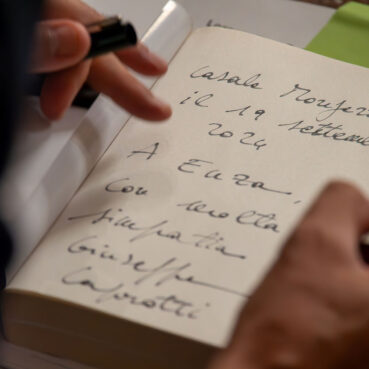 Casale Monferr
il 19 settem
2024
A Enza,
con molta
simpatia
Giuseppe
Caprotti